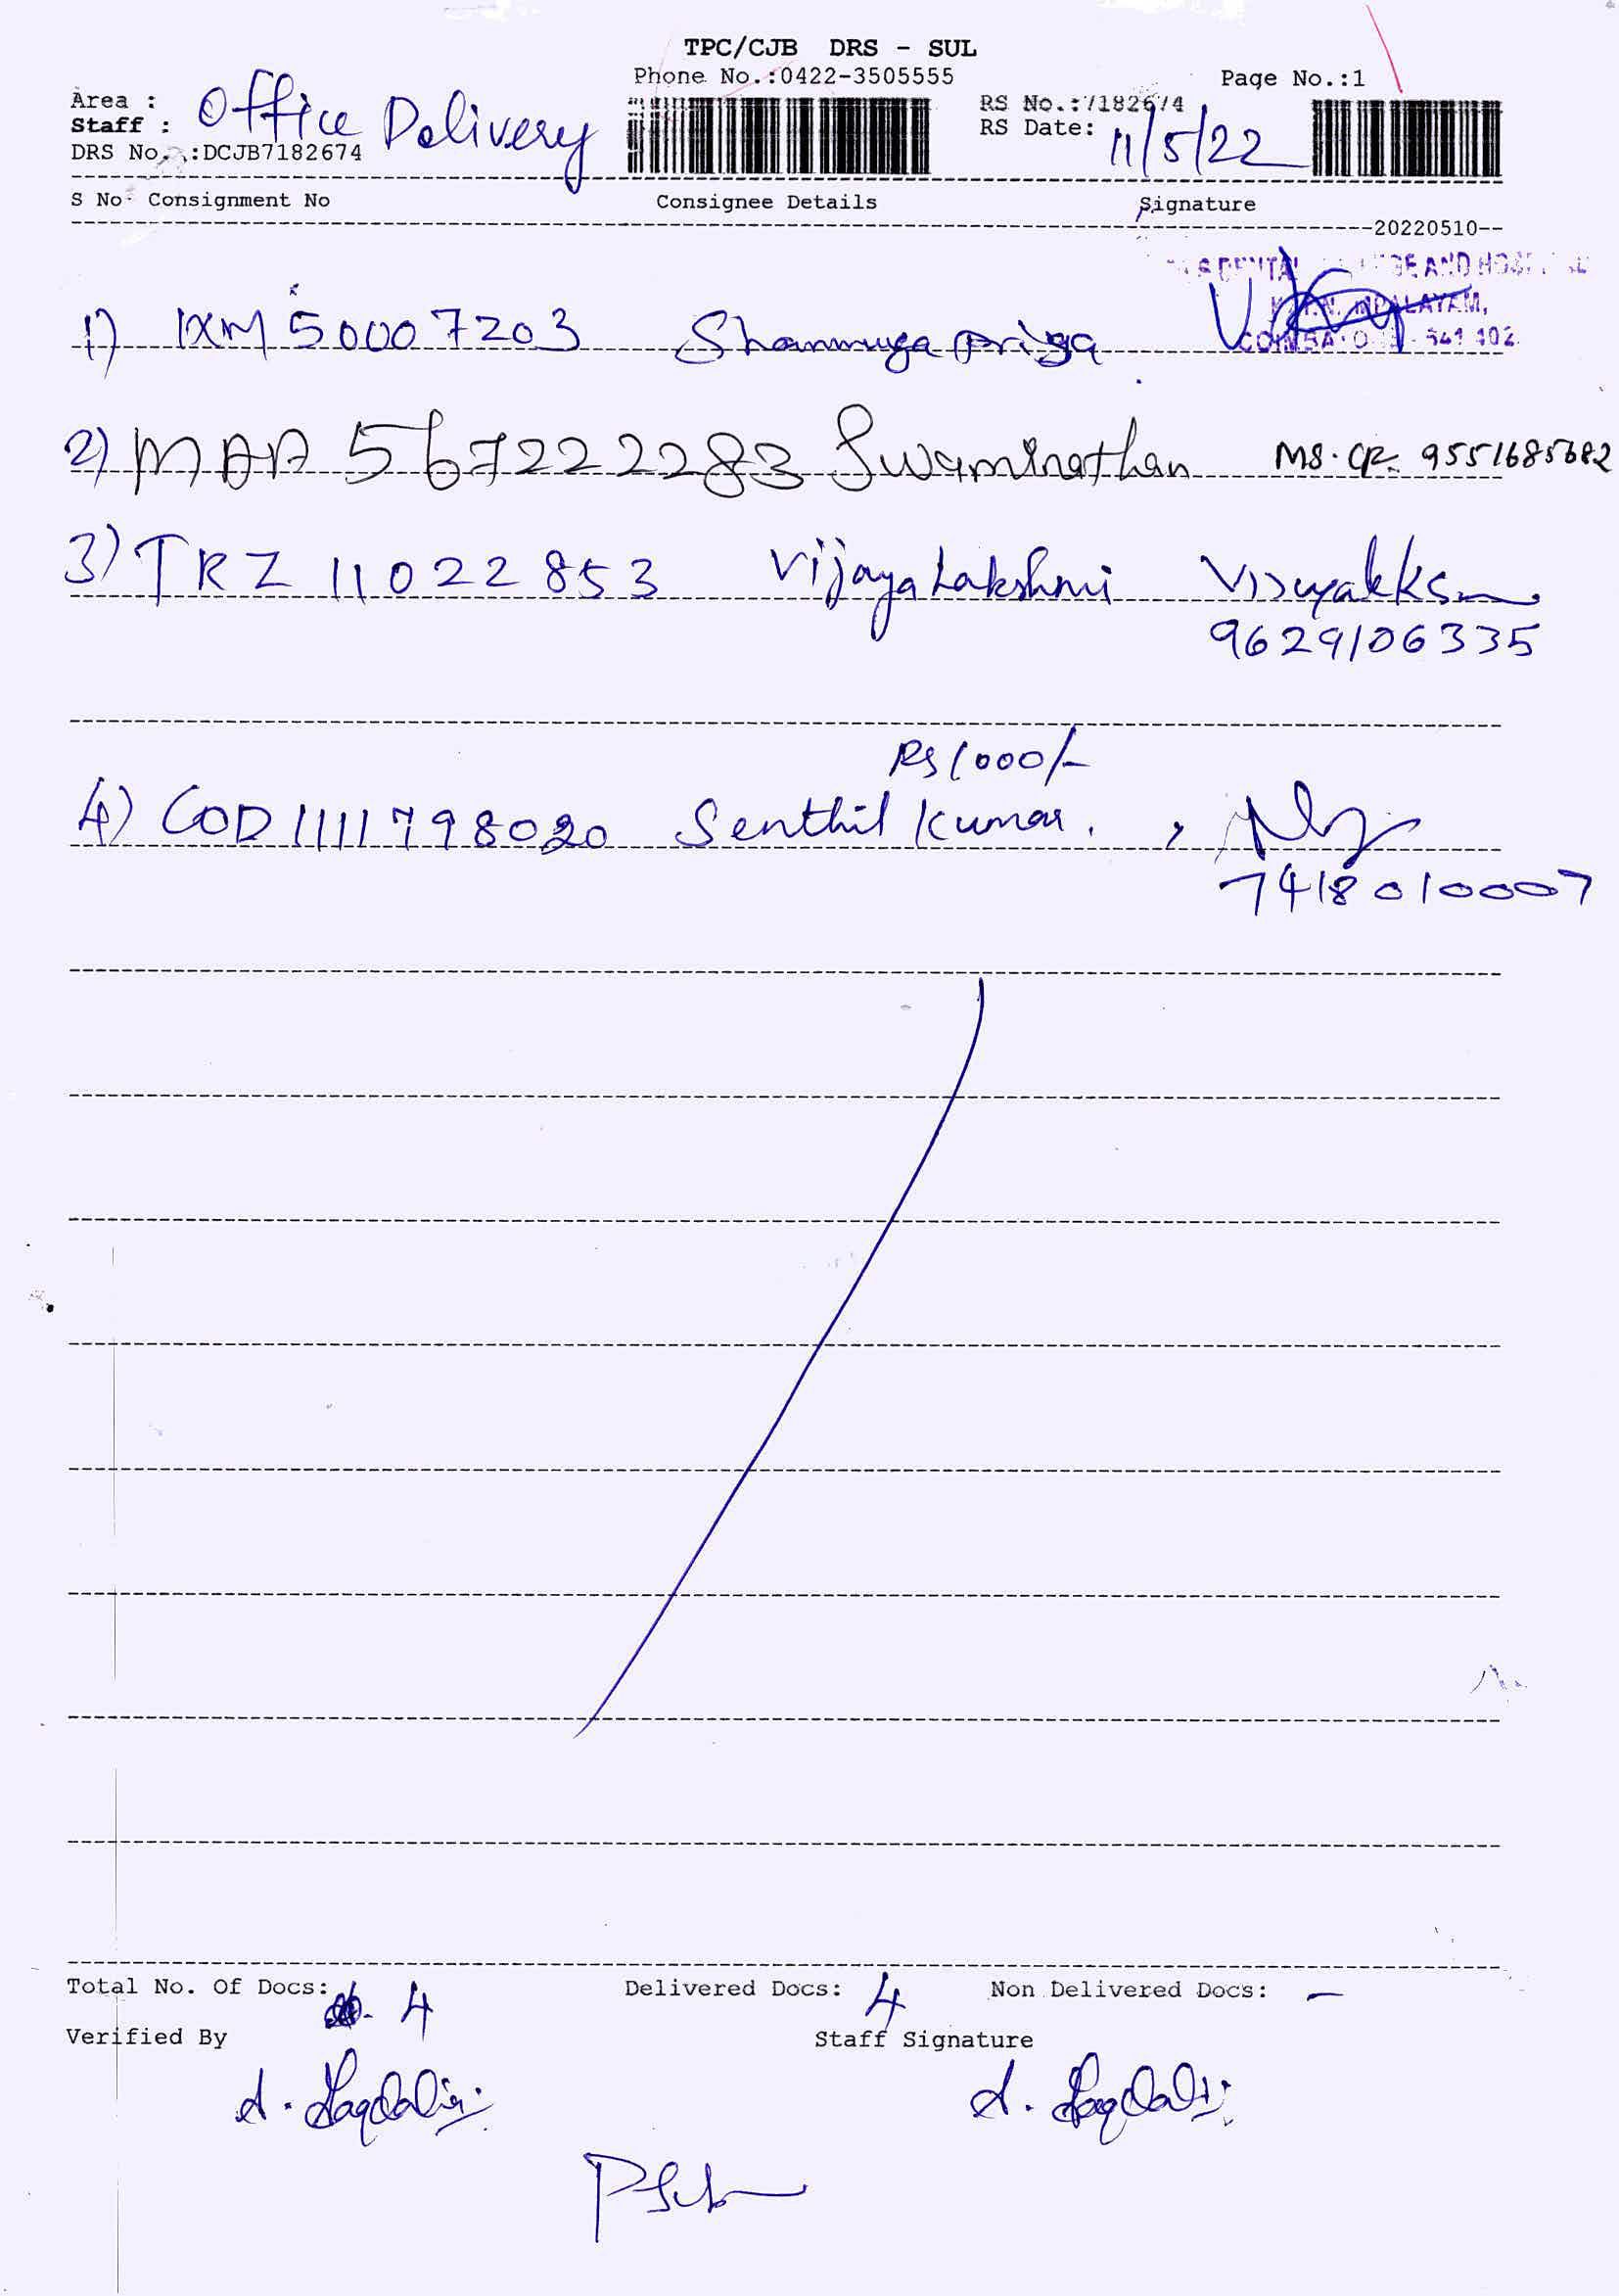 TPC/CJB DRS - SUL
Phone No.:0422-3505555
Page No.:1
Area : Office Delivery
Staff :
RS No.:7182674
RS Date: 11/5/22
DRS No. :DCJB7182674
S No Consignment No Consignee Details Signature
20220510
DENTAL AND
1) IXM 50007203 Shanmuga priya
COIMBATORE 641 402
2) MAA 567222283 Swaminathan MS. CR. 9551685682
3) TRZ 11022853 Vijaya Lakshmi
9629106335
Rs 1000/-
4) COD 1111798020 Senthil Kumar.
7418010007
Total No. Of Docs: 4 Delivered Docs: 4 Non Delivered Docs: -
Verified By Staff Signature